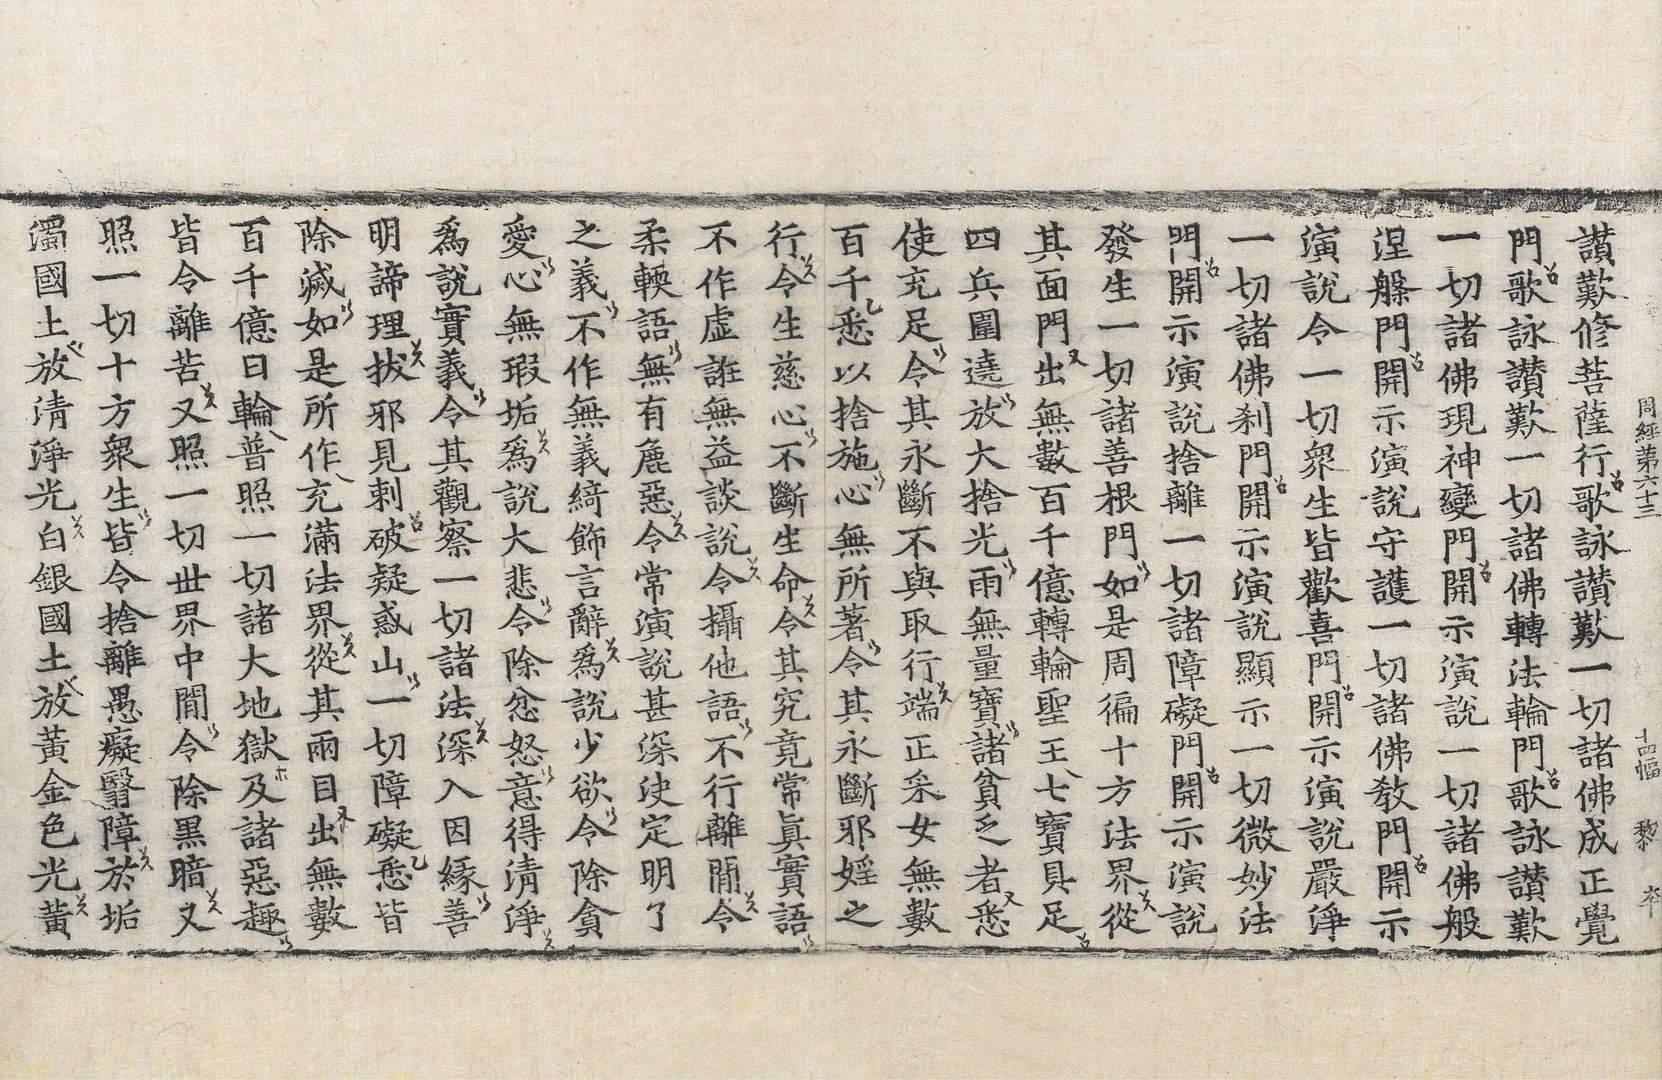 讃歎修菩薩行歌詠讃歎一切諸佛成正覺
門歌詠讃歎一切諸佛轉法輪門歌詠讃歎
一切諸佛現神變門開示演說一切諸佛般
涅槃門開示演說守護一切諸佛教門開示
演說令一切衆生皆歡喜門開示演說嚴淨
一切諸佛刹門開示演說顯示一切微妙法
門開示演說捨離一切諸障礙門開示演說
發生一切諸善根門如是周徧十方法界從
其面門出無數百千億轉輪聖王七寶具足
四兵圍遶放大捨光雨無量寶諸貧乏者悉
使充足令其永斷不與取行端正采女無數
百千悉以捨施心無所著令其永斷邪婬之
行令生慈心不斷生命令其究竟常眞實語
不作虛誑無益談說令攝他語不行離間令
柔輭語無有麁惡令常演說甚深決定明了
之義不作無義綺飾言辭爲說少欲令除貪
愛心無瑕垢爲說大悲令除忿怒意得清淨
爲說實義令其觀察一切諸法深入因緣善
明諦理拔邪見刺破疑惑山一切障礙悉皆
除滅如是所作充滿法界從其兩目出無數
百千億日輪普照一切諸大地獄及諸惡趣
皆令離苦又照一切世界中間令除黑暗又
照一切十方衆生皆令捨離愚癡翳障於垢
濁國土放清淨光白銀國土放黃金色光黃
周經第六十三 十四幅 黎